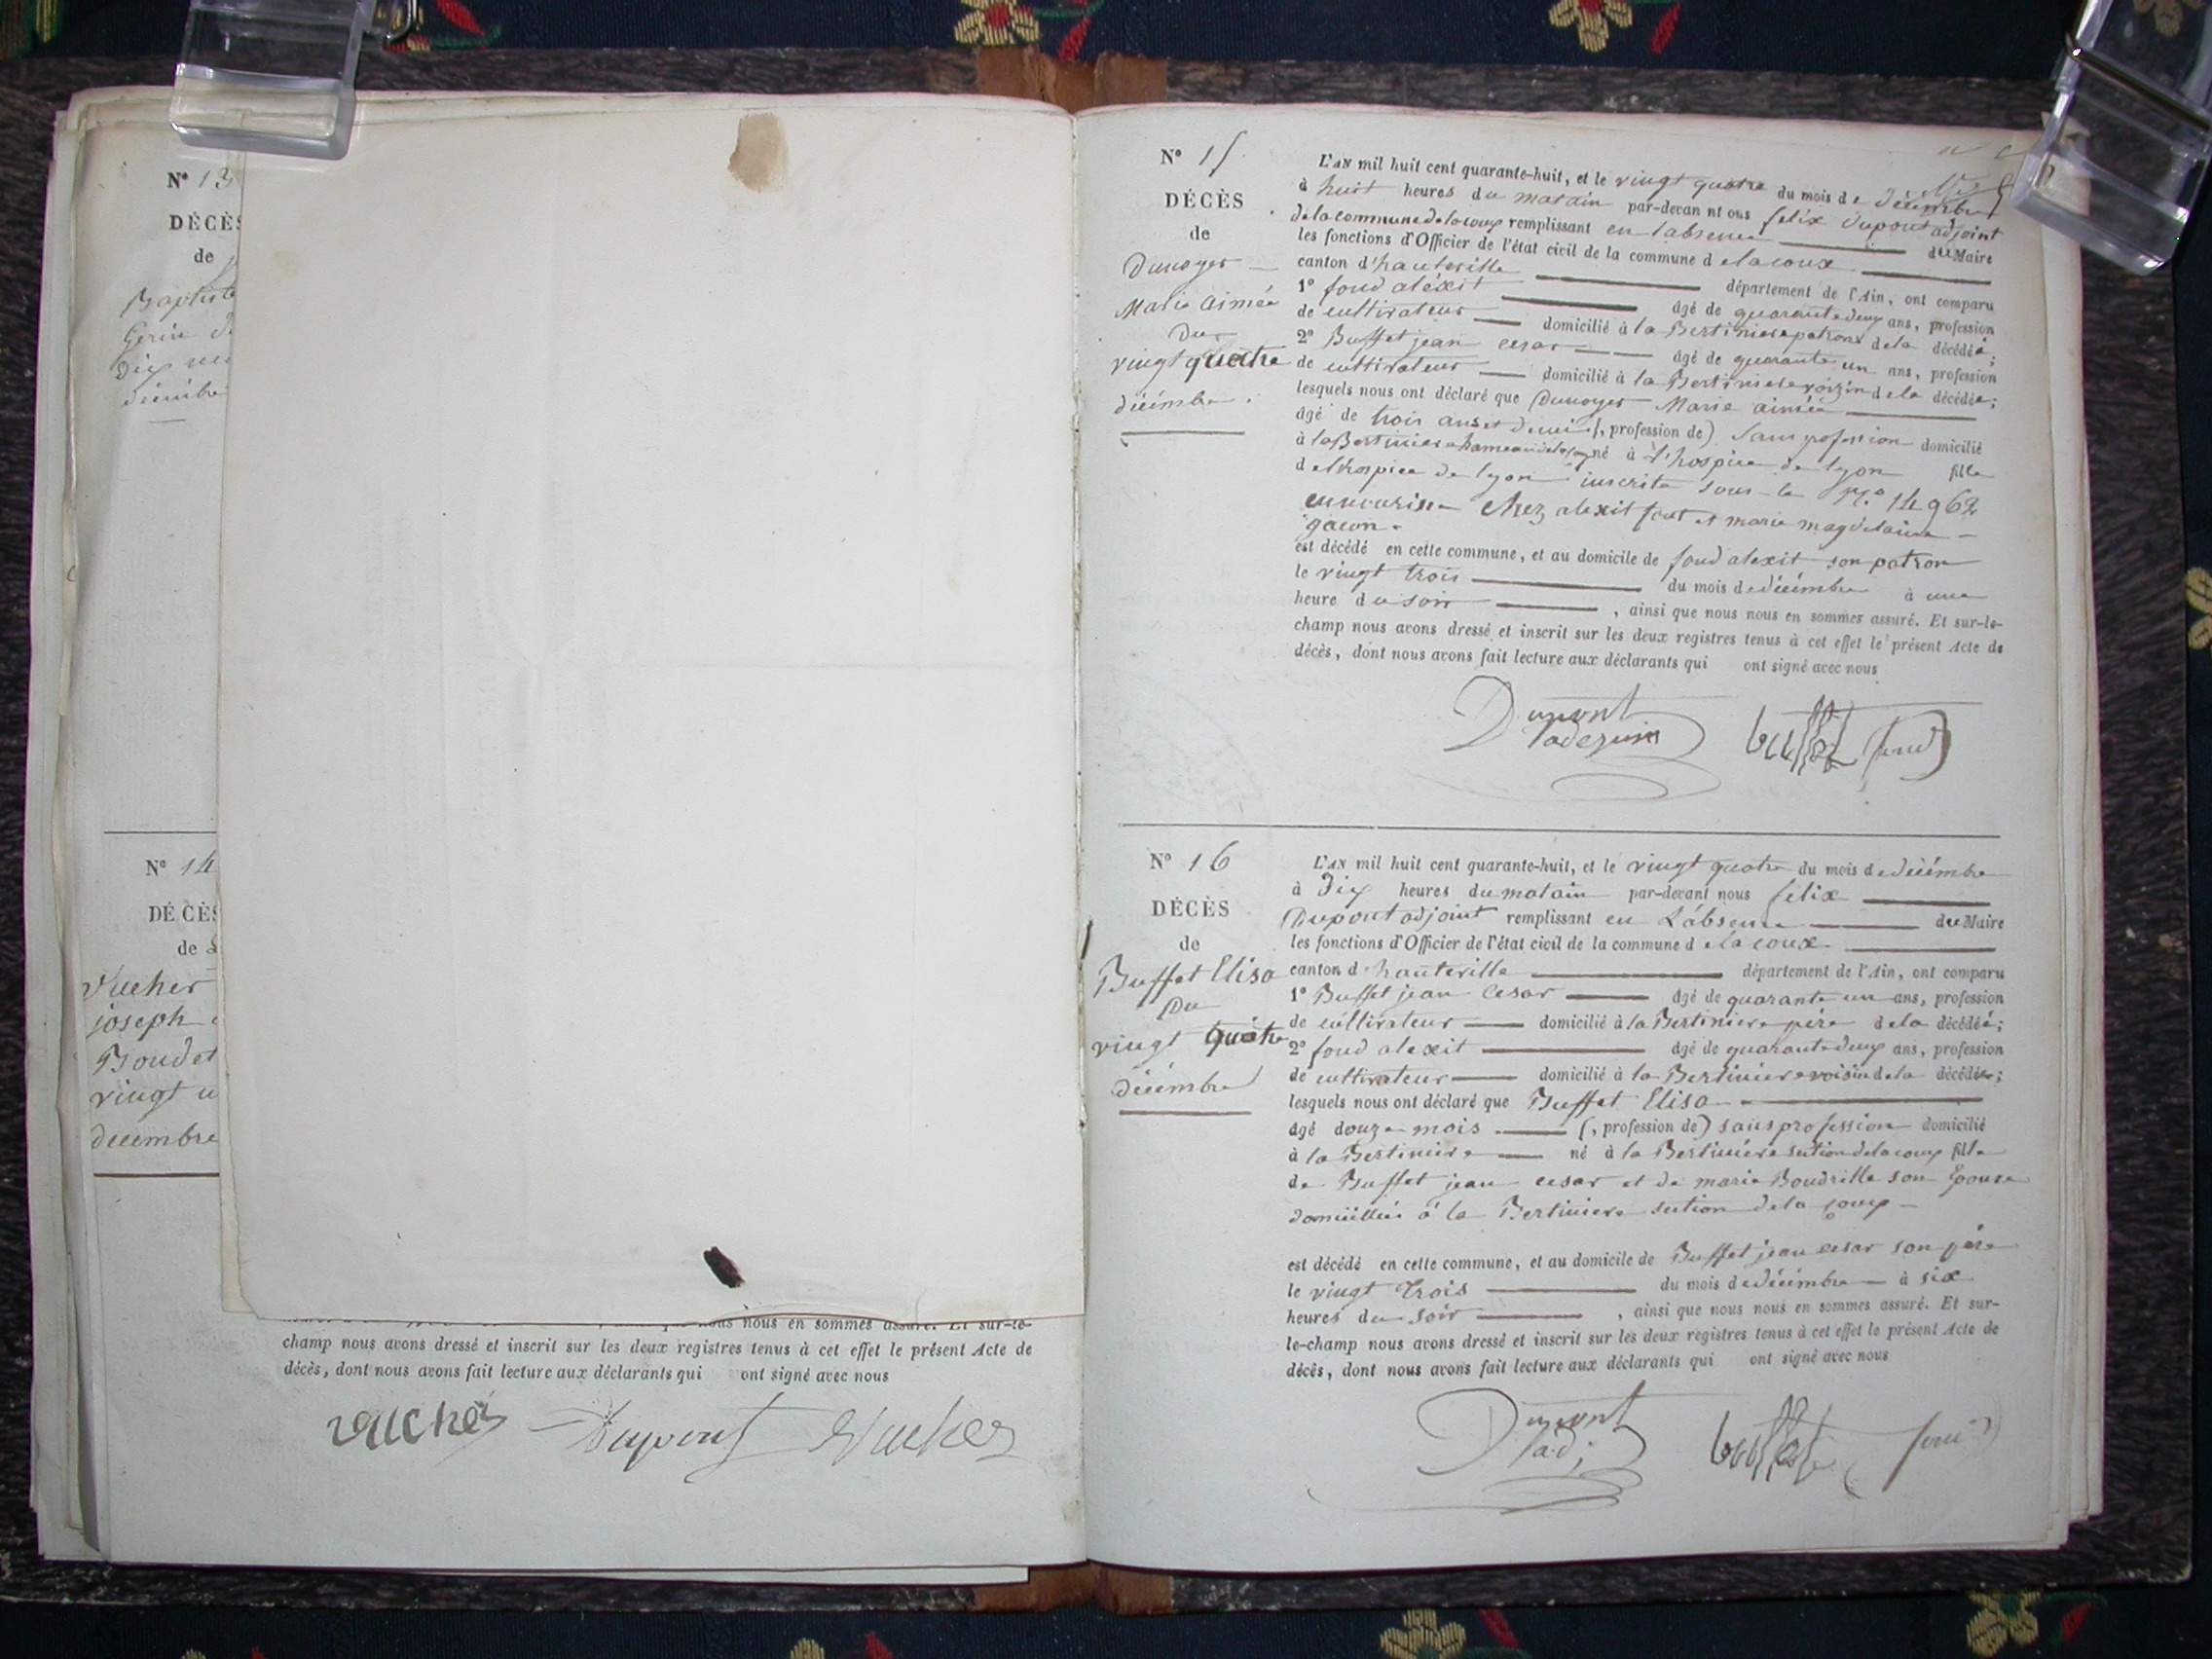 N° 13
DÉCÈS
de
Baptiste
décembre
N° 14
DÉCÈS
de
Vucher
joseph
Boudet
vingt u
décembre
champ nous avons dressé et inscrit sur les deux registres tenus à cet effet le présent Acte de
décès, dont nous avons fait lecture aux déclarants qui ont signé avec nous
vuchez Dupont Vucher
N° 15
DÉCÈS
de
Dunoyer
Marie aimée
Du
vingt quatre
décémbre.
L'AN mil huit cent quarante-huit, et le vingt quatre du mois de décémbre
à huit heures du matain par-devan nt ous felix dupont adjoint
de la commune de lacoux remplissant en l'absence du Maire
les fonctions d'Officier de l'état civil de la commune de lacoux
canton d'hauteville département de l'Ain, ont comparu
1° foud aléxit âgé de quarante deux ans, profession
de cultivateur domicilié à la Bertiniere patron de la décédée;
2° Buffet jean cesar âgé de quarante un ans, profession
de cultivateur domicilié à la Bertiniere voizin de la décédée;
lesquels nous ont déclaré que Dunoyer Marie aimée
âgé de trois ans et demi (, profession de) Sans profession domicilié
à la Bertiniere hameau né à l'hospice de lyon fille
de l'hospice de lyon inscrite sous le N° 14962
chez alexit foud et marie magdelaine
gacon.
est décédé en cette commune, et au domicile de foud alexit son patron
le vingt trois du mois de décémbre à une
heure du soir, ainsi que nous nous en sommes assuré. Et sur-le-
champ nous avons dressé et inscrit sur les deux registres tenus à cet effet le présent Acte de
décès, dont nous avons fait lecture aux déclarants qui ont signé avec nous
Dupont buffet foud
N° 16
DÉCÈS
de
Buffet Elisa
Du
vingt quatre
décémbre
L'AN mil huit cent quarante-huit, et le vingt quatre du mois de décémbre
à Dix heures du matain par-devant nous felix
Dupont adjoint remplissant en L'absence du Maire
les fonctions d'Officier de l'état civil de la commune de la coux
canton d'hauteville département de l'Ain, ont comparu
1° Buffet jean Cesar âgé de quarante un ans, profession
de cultivateur domicilié à la Bertiniere pére de la décédée;
2° foud alexit âgé de quarante deux ans, profession
de cultivateur domicilié à la Bertiniere voisin de la décédée;
lesquels nous ont déclaré que Buffet Elisa
âgé douze mois (, profession de) sans profession domicilié
à la Bertiniere né à la Bertiniére section de la coux fille
de Buffet jean cesar et de marie Boudrille son Epouse
domicilliée à la Bertiniere section de la coux
est décédé en cette commune, et au domicile de Buffet jean cesar son pére
le vingt trois du mois de décémbre à six
heures du soir, ainsi que nous nous en sommes assuré. Et sur-
le-champ nous avons dressé et inscrit sur les deux registres tenus à cet effet le présent Acte de
décès, dont nous avons fait lecture aux déclarants qui ont signé avec nous
Dupont adj buffet foud